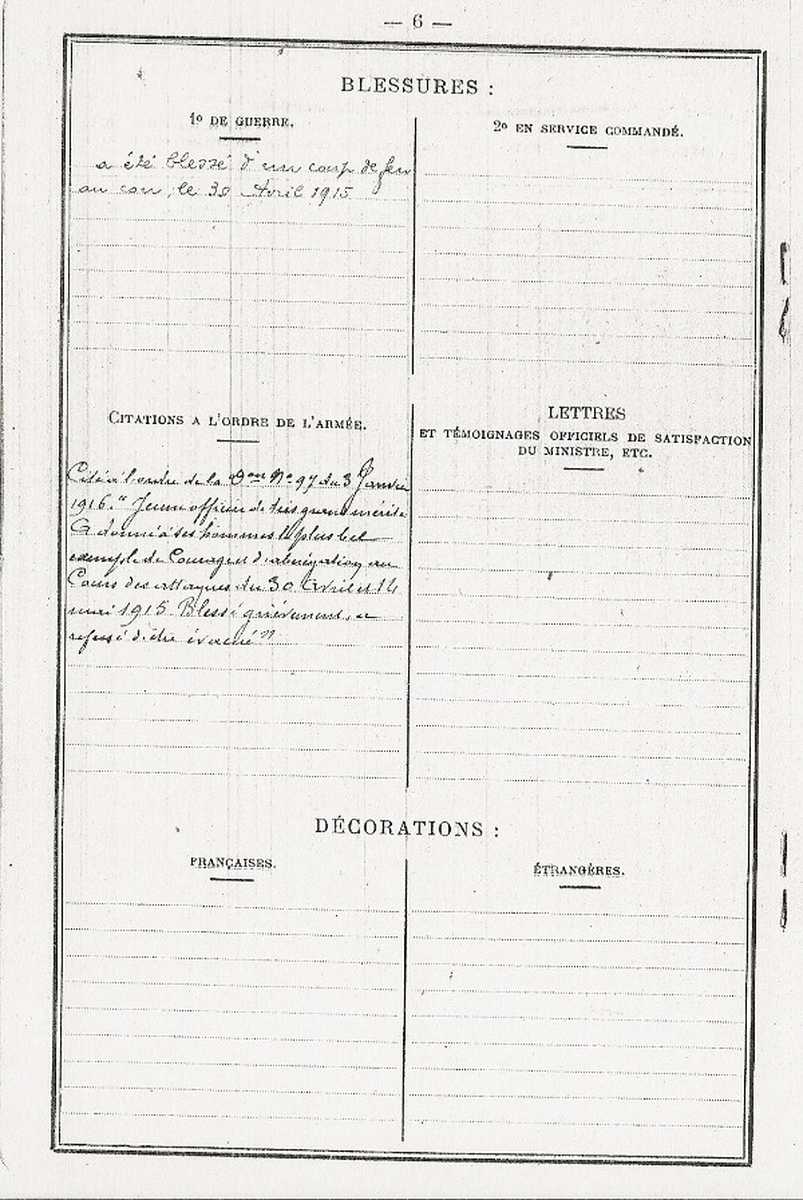 — 6 —
BLESSURES :
1º DE GUERRE.
a été blessé d'un coup de feu
au cou, le 30 Avril 1915
2º EN SERVICE COMMANDÉ.
CITATIONS A L'ORDRE DE L'ARMÉE.
Cité à l'ordre de la Don No 97 du 3 Janvier
1916. "Jeune officier de très grand mérite
a donné à ses hommes le plus bel
exemple de courage et d'abnégation au
Cours des attaques du 30 Avril et 14
mai 1915 Blessé grièvement, a
refusé d'être évacué"
LETTRES
ET TÉMOIGNAGES OFFICIELS DE SATISFACTION
DU MINISTRE, ETC.
DÉCORATIONS :
FRANÇAISES.
ÉTRANGÈRES.